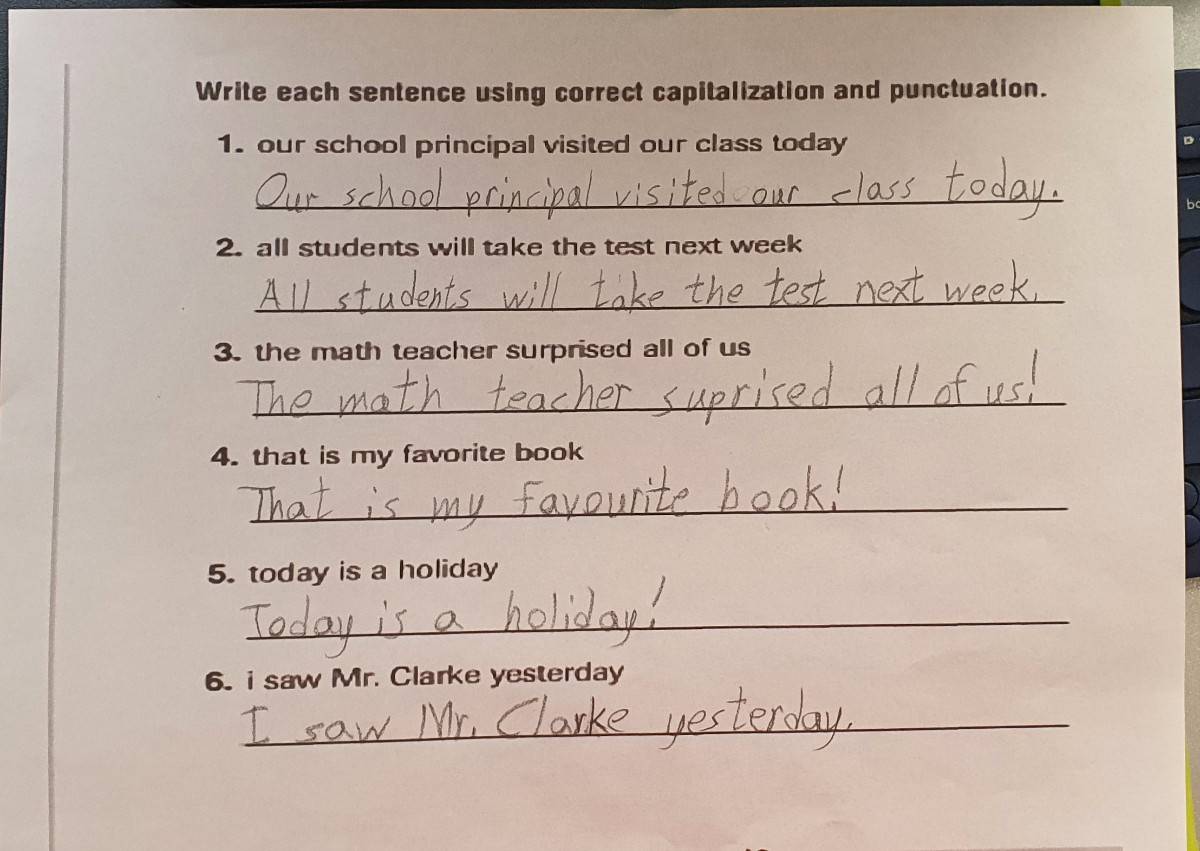 Write each sentence using correct capitalization and punctuation.
1. our school principal visited our class today
Our school principal visited our class today.
2. all students will take the test next week
All students will take the test next week.
3. the math teacher surprised all of us
The math teacher suprised all of us!
4. that is my favorite book
That is my favourite book!
5. today is a holiday
Today is a holiday!
6. i saw Mr. Clarke yesterday
I saw Mr. Clarke yesterday.